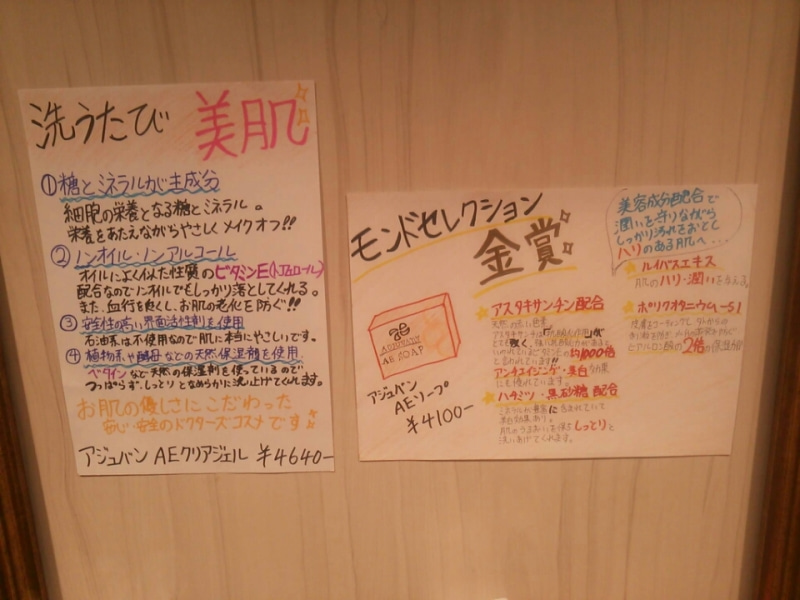 洗うたび 美肌
①糖とミネラルが主成分
細胞の栄養となる糖とミネラル。
栄養をあたえながらやさしくメイクオフ!!
②ノンオイル・ノンアルコール
オイルによく似た性質のビタミンE(トコフェロール)
配合なのでノンオイルでもしっかり落としてくれる。
また、血行を良くし、お肌の老化を防ぐ!!
③安全性の高い界面活性剤を使用
石油系は不使用なので肌に本当にやさしいです。
④植物系や酵母などの天然保湿剤を使用
ベタインなど天然の保湿剤を使っているので
つっぱらず、しっとりとなめらかに洗い上げてくれます。
お肌の優しさにこだわった
安心・安全のドクターズコスメです
アジュバン AEクリアジェル ¥4640-
モンドセレクション
金賞
AE SOAP
アジュバン
AEソープ
¥4100-
アスタキサンチン配合
天然の赤い色素
約1000倍
と言われています!!
アンチエイジング・美白効果
にも優れています。
ハチミツ・黒砂糖 配合
ミネラルが豊富に含まれていて
美白効果あり。
肌のうるおいを保ちしっとりと
洗いあげてくれます。
美容成分配合で
潤いを守りながら
しっかり汚れをおとし
ハリのある肌へ…
ルイボスエキス
肌のハリ・潤いを与える。
ポリクオタニウム-51
ヒアルロン酸の2倍の保湿力